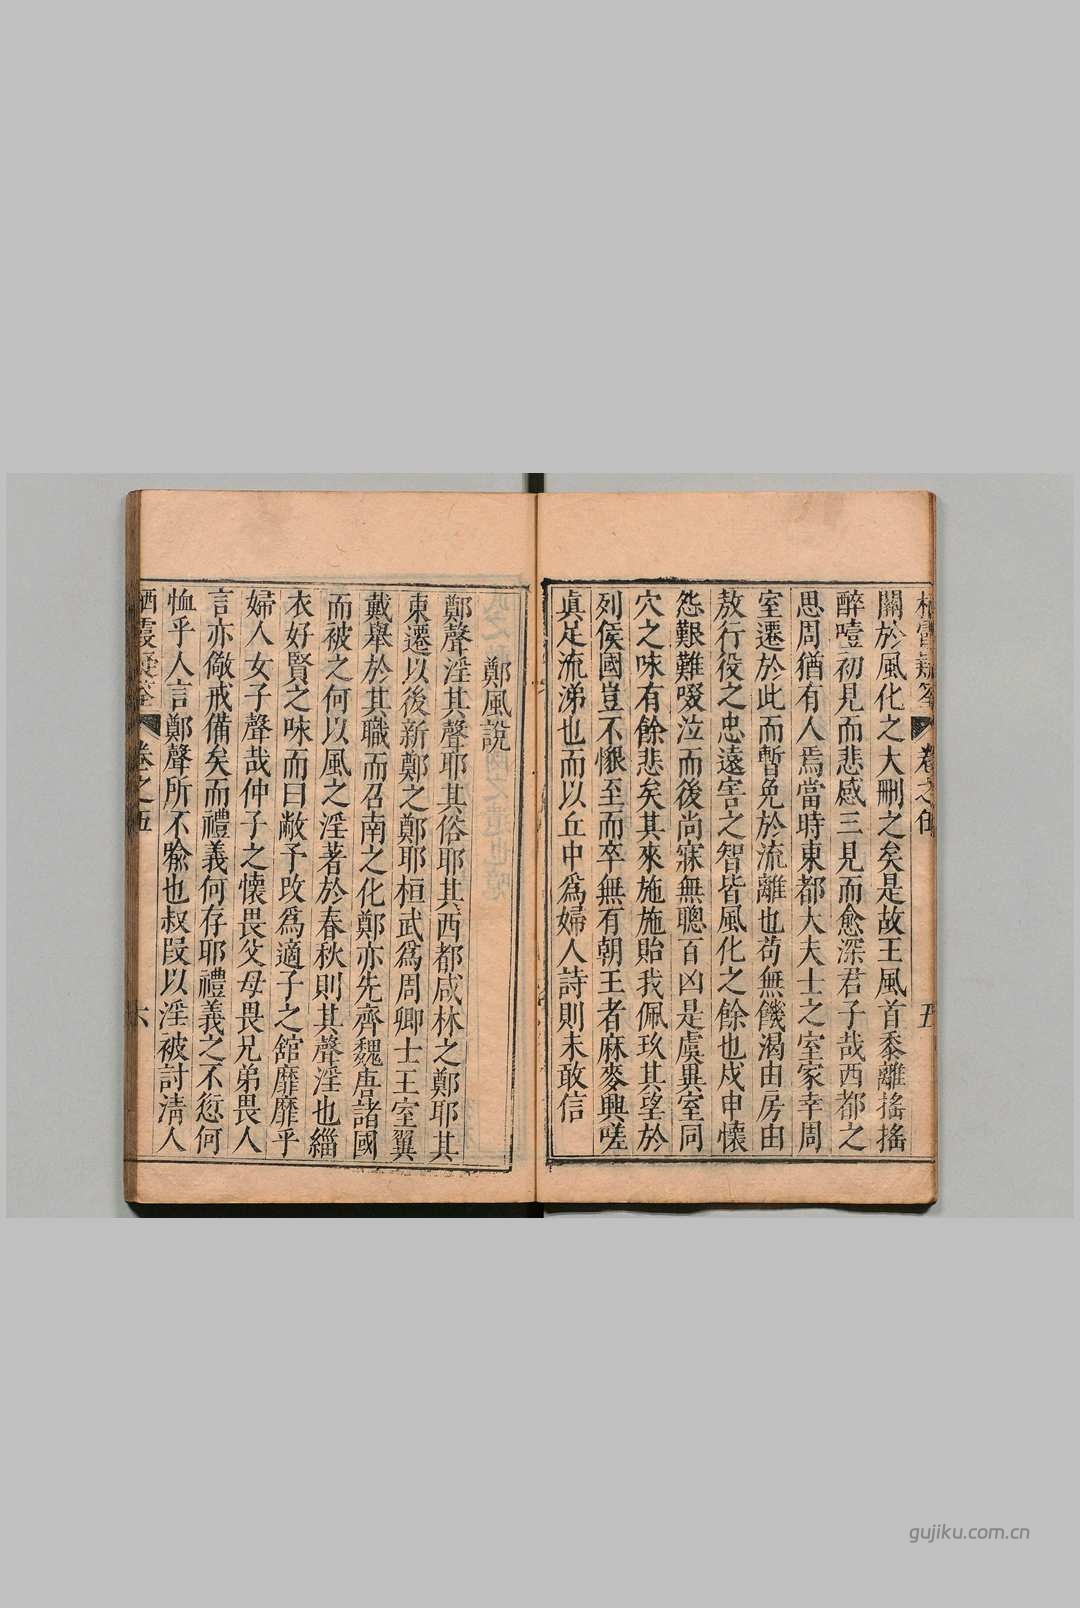 卷之伍
五
關於風化之大刪之矣是故王風首黍離搖搖
醉噎初見而悲感三見而愈深君子哉西都之
思周猶有人焉當時東都大夫士之室家幸周
室遷於此而暫免於流離也苟無饑渴由房由
敖行役之忠遠害之智皆風化之餘也戍申懷
怨艱難啜泣而後尚寐無聰百凶是虞異室同
穴之味有餘悲矣其來施施貽我佩玖其望於
列侯國豈不懇至而卒無有朝王者麻麥興嗟
眞足流涕也而以丘中為婦人詩則未敢信
鄭風說
鄭聲淫其聲耶其俗耶其西都咸林之鄭耶其
東遷以後新鄭之鄭耶桓武為周卿士王室翼
戴舉於其職而召南之化鄭亦先齊魏唐諸國
而被之何以風之淫著於春秋則其聲淫也緇
衣好賢之味而曰敝予改為適子之舘靡靡乎
婦人女子聲哉仲子之懷畏父母畏兄弟畏人
言亦儆戒備矣而禮義何存耶禮義之不愆何
恤乎人言鄭聲所不喩也叔叚以淫被討淸人
栖霞疑筌
卷之伍
六